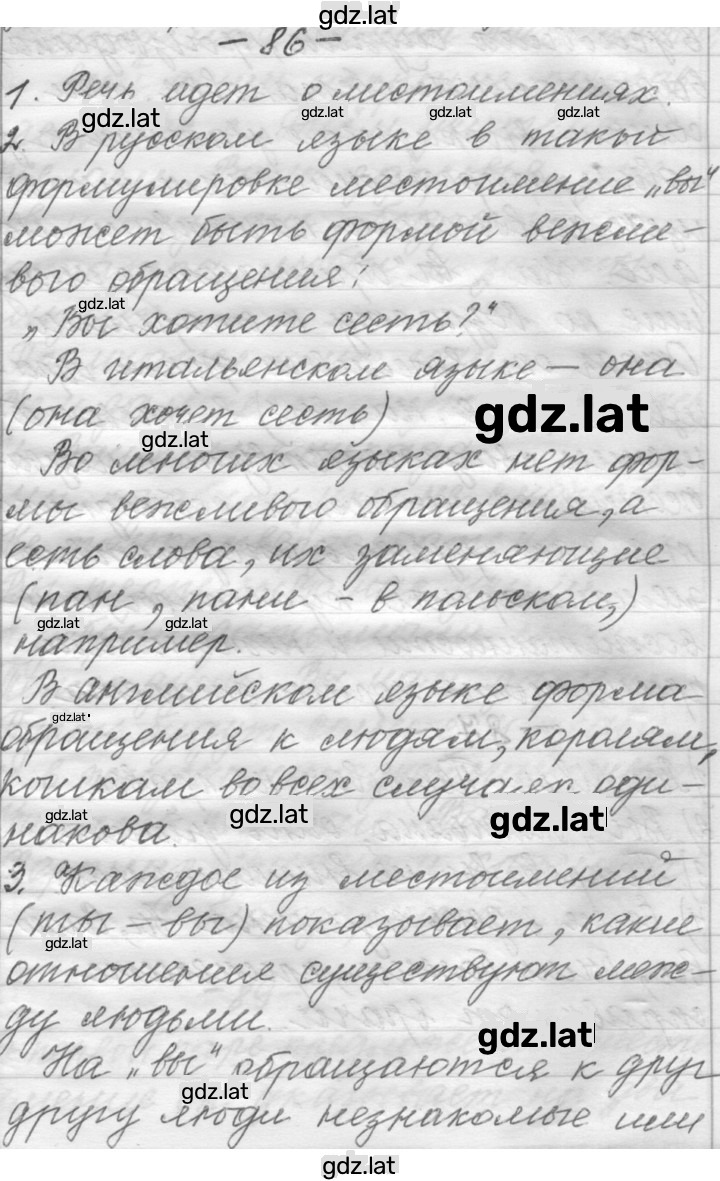 gdz.lat
- 86 -
1. Речь идет о местоимениях.
gdz.lat gdz.lat gdz.lat gdz.lat
2. В русском языке в такой
формулировке местоимение „вы“
может быть формой вежли-
вого обращения:
gdz.lat
„Вы хотите сесть?“
В итальянском языке – она
(она хочет сесть)
gdz.lat
gdz.lat
Во многих языках нет фор-
мы вежливого обращения, а
есть слова, их заменяющие
(пан, пани - в польском,)
gdz.lat gdz.lat
например.
В английском языке форма
gdz.lat
обращения к людям, королям,
кошкам во всех случаях оди-
gdz.lat gdz.lat gdz.lat
накова.
3. Каждое из местоимений
(ты – вы) показывает, какие
gdz.lat
отношения существуют меж-
ду людьми.
gdz.lat
На „вы“ обращаются к друг
gdz.lat
другу люди незнакомые или
gdz.lat